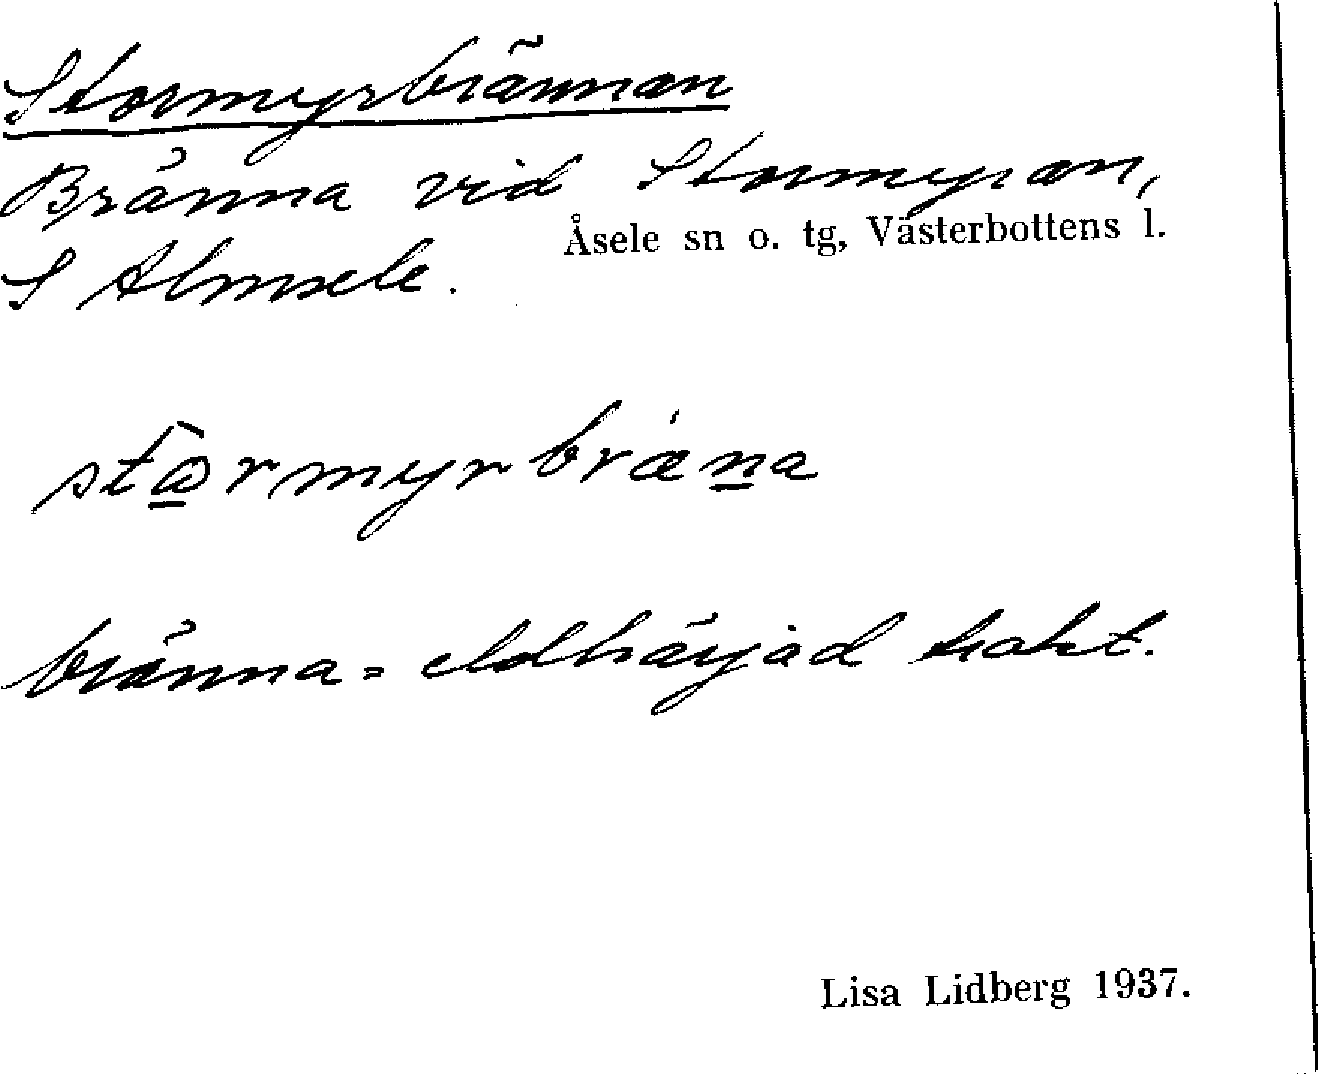 Stormyrbrännan
Bränna vid Stormyran,
Åsele sn o. tg, Västerbottens l.
S Almsele.
stὰ̲rmyrbræ̍n̲a
bränna = eldhärjad trakt.
Lisa Lidberg 1937.